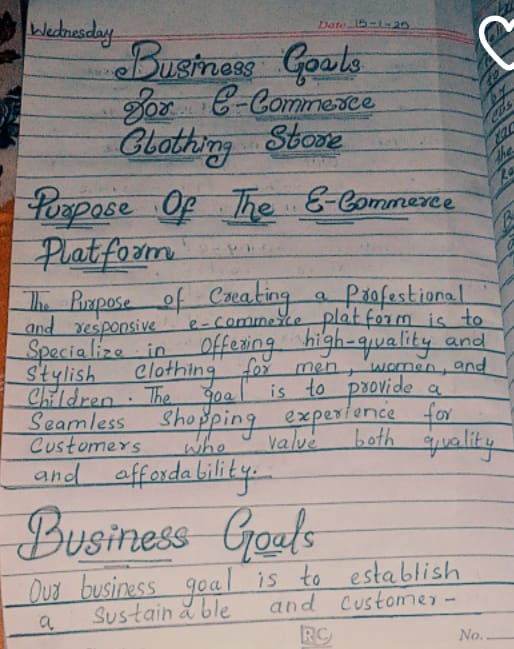 Wednesday
Date 15-1-25
Business Goals
for E-Commerce
Clothing Store
Purpose Of The E-Commerce
Platform
The Purpose of Creating a Profestional
and responsive e-commerce platform is to
Specialize in offering high-quality and
Stylish Clothing for men, women, and
Children. The goal is to provide a
Seamless Shopping experience for
Customers who value both quality
and affordability.
Business Goals
Our business goal is to establish
a Sustainable and Customer-
RC
No.